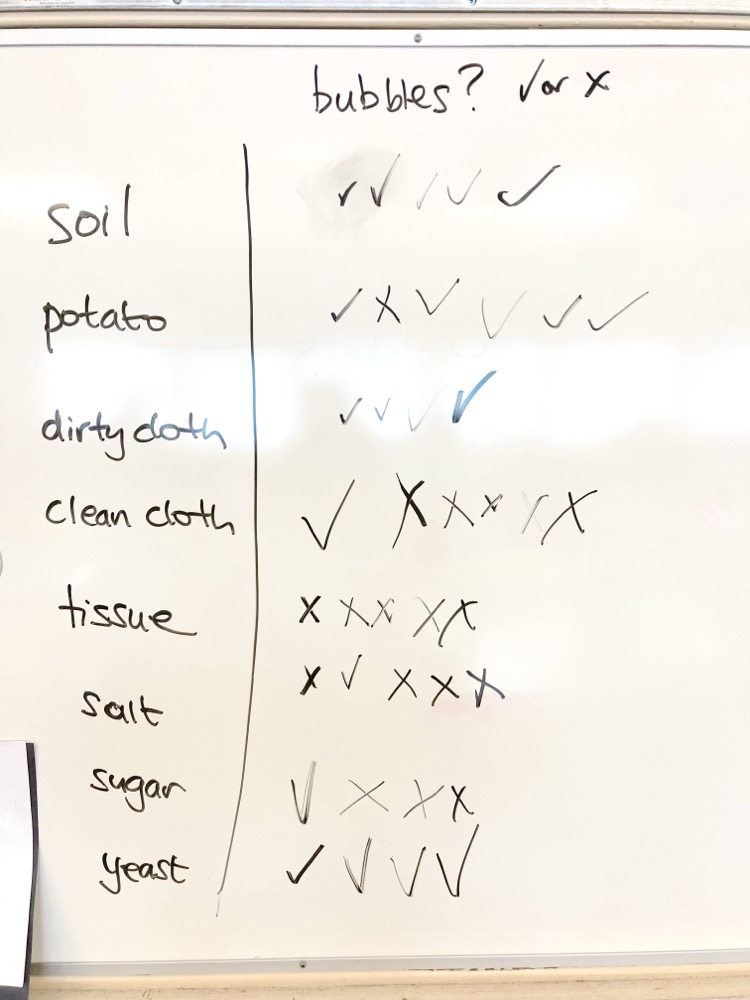 bubbles? ✓ or x
soil ✓ ✓ ✓ ✓ ✓
potato ✓ x ✓ ✓ ✓ ✓
dirty cloth ✓ ✓ ✓ ✓
clean cloth ✓ x x x x x
tissue x x x x x
salt x ✓ x x x
sugar ✓ x x x
yeast ✓ ✓ ✓ ✓